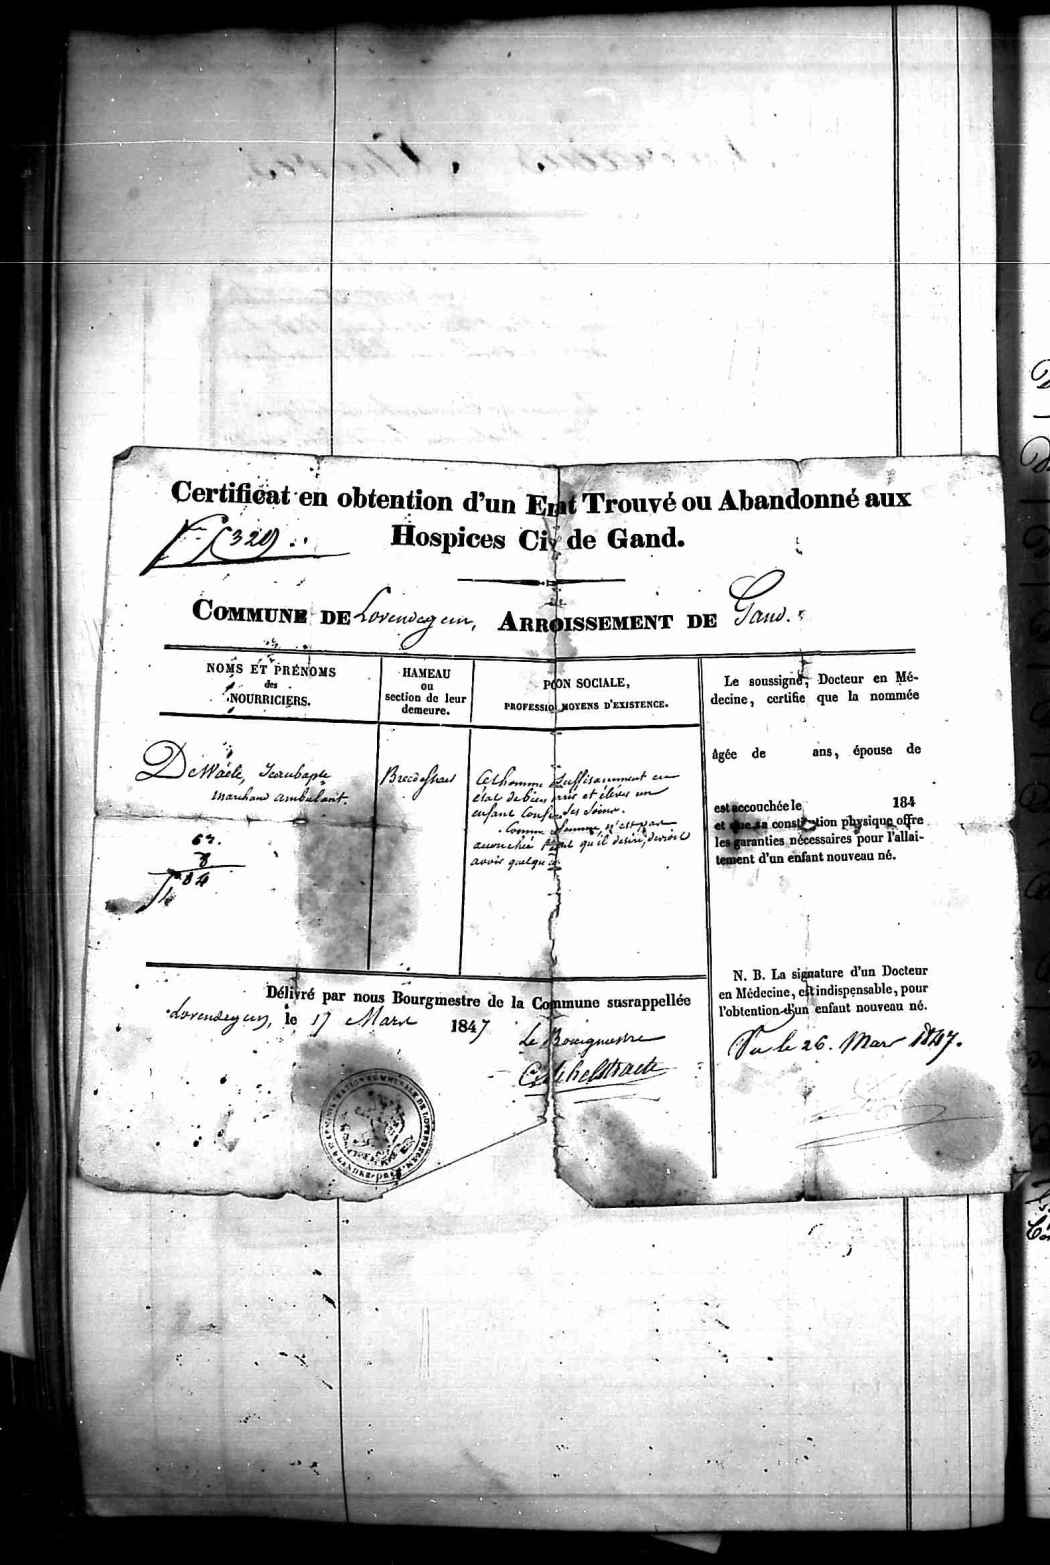 Certificat en obtention d'un E nt Trouvé ou Abandonné aux
Hospices Civ de Gand.
F° 329
COMMUNE DE Lovendegem, ARRO ISSEMENT DE Gand.
NOMS ET PRÉNOMS
des
NOURRICIERS.
HAMEAU
ou
section de leur
demeure.
P ON SOCIALE,
PROFESSIO MOYENS D'EXISTENCE.
De Waele, Jeanbapte
marchand ambulant.
63.
8
Cet homme Suffisamment en
état de bien et élever un
enfant ses soins.
Comme femme n'est pas
accouchée qu'il desire, devroit
avoir quelque
Le soussigné, Docteur en Mé-
decine, certifie que la nommée
âgée de ans, épouse de
est accouchée le 184
et que sa constitution physique offre
les garanties nécessaires pour l'allai-
tement d'un enfant nouveau né.
N. B. La signature d'un Docteur
en Médecine, est indispensable, pour
l'obtention d'un enfant nouveau né.
Délivré par nous Bourgmestre de la Commune susrappellée
Lovendegem, le 17 Mars 1847
Le Bourgmestre
Vu le 26. Mars 1847.